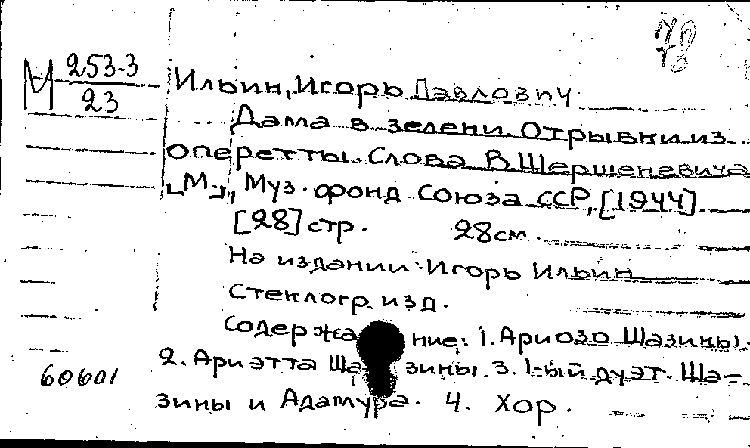 78
М 253-3
23
Ильин, Игорь Павлович
Дама в зелени. Отрывки из
оперетты. Слова В. Шершеневича
[М.], Муз. фонд Союза ССР, [1944]
[28] стр. 28 см.
На издании: Игорь Ильин
Стеклогр. изд.
Содержание: 1. Ариозо Шазины.
2. Ариэтта Шазины. 3. 1-ый дуэт Ша-
зины и Адамура. 4. Хор.
60601